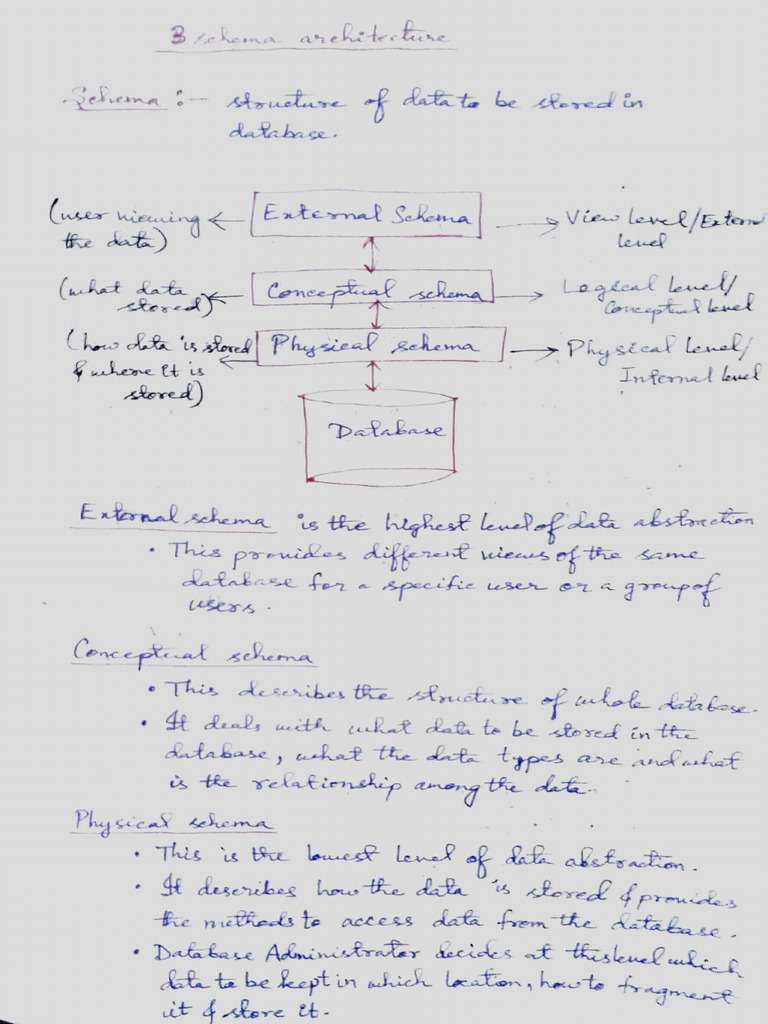 3 schema architecture
Schema :- structure of data to be stored in
database.
(user viewing
the data)
External Schema
View level/External
level
(what data
stored)
Conceptual schema
Logical level/
Conceptual level
(how data is stored
& where it is
stored)
Physical schema
Physical Level/
Internal level
Database
External schema is the highest level of data abstraction
• This provides different views of the same
database for a specific user or a group of
users.
Conceptual schema
• This describes the structure of whole database.
• It deals with what data to be stored in the
database, what the data types are and what
is the relationship among the data.
Physical schema
• This is the lowest level of data abstraction.
• It describes how the data is stored & provides
the methods to access data from the database.
• Database Administrator decides at this level which
data to be kept in which location, how to fragment
it & store it.